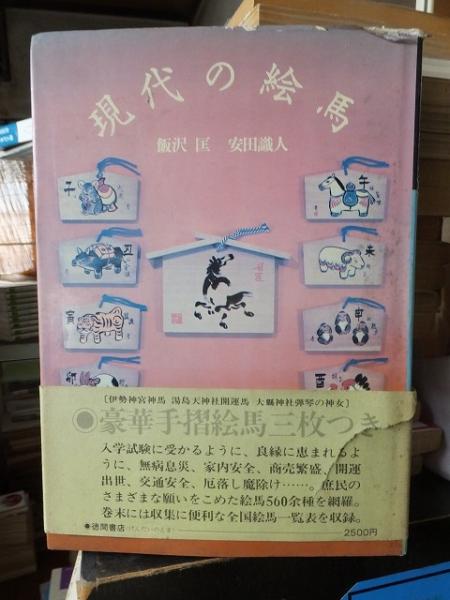 現代の絵馬
飯沢 匡 安田識人
子
午
丑
未
寅
申
卯
酉
[伊勢神宮神馬 湯島天神社開運馬 大縣神社弾琴の神女]
●豪華手摺絵馬三枚つき
入学試験に受かるように、良縁に恵まれるよ
うに、無病息災、家内安全、商売繁盛、開運
出世、交通安全、厄落し魔除け……。庶民の
さまざまな願いをこめた絵馬560余種を網羅。
巻末には収集に便利な全国絵馬一覧表を収録。
●徳間書店 (げんだいのえま) 2500円